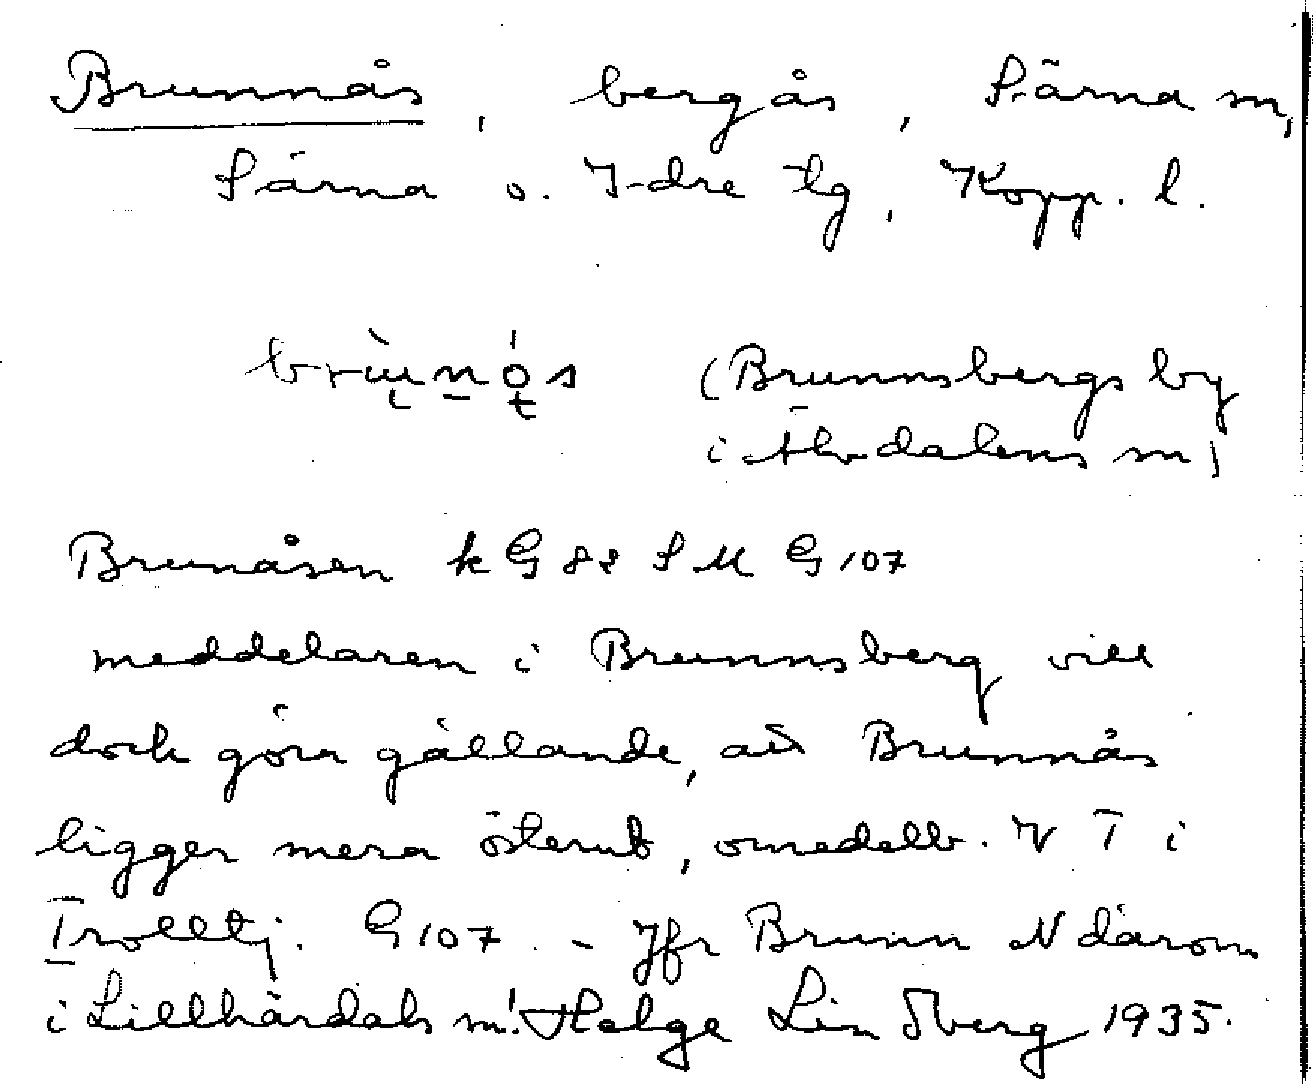 Brunnås, bergås, Särna sn,
Särna o. Idre tg, Kopp. l.
(Brunnsbergs by
i Älvdalens sn)
Brunåsen kG 82 SM G 107
meddelaren i Brunnsberg vill
dock göra gällande, att Brunnås
ligger mera österut, omedelb. V T i
Trolltj. G 107. - Jfr Brunn N därom
i Lillhärdals sn! Helge Lindberg 1935.